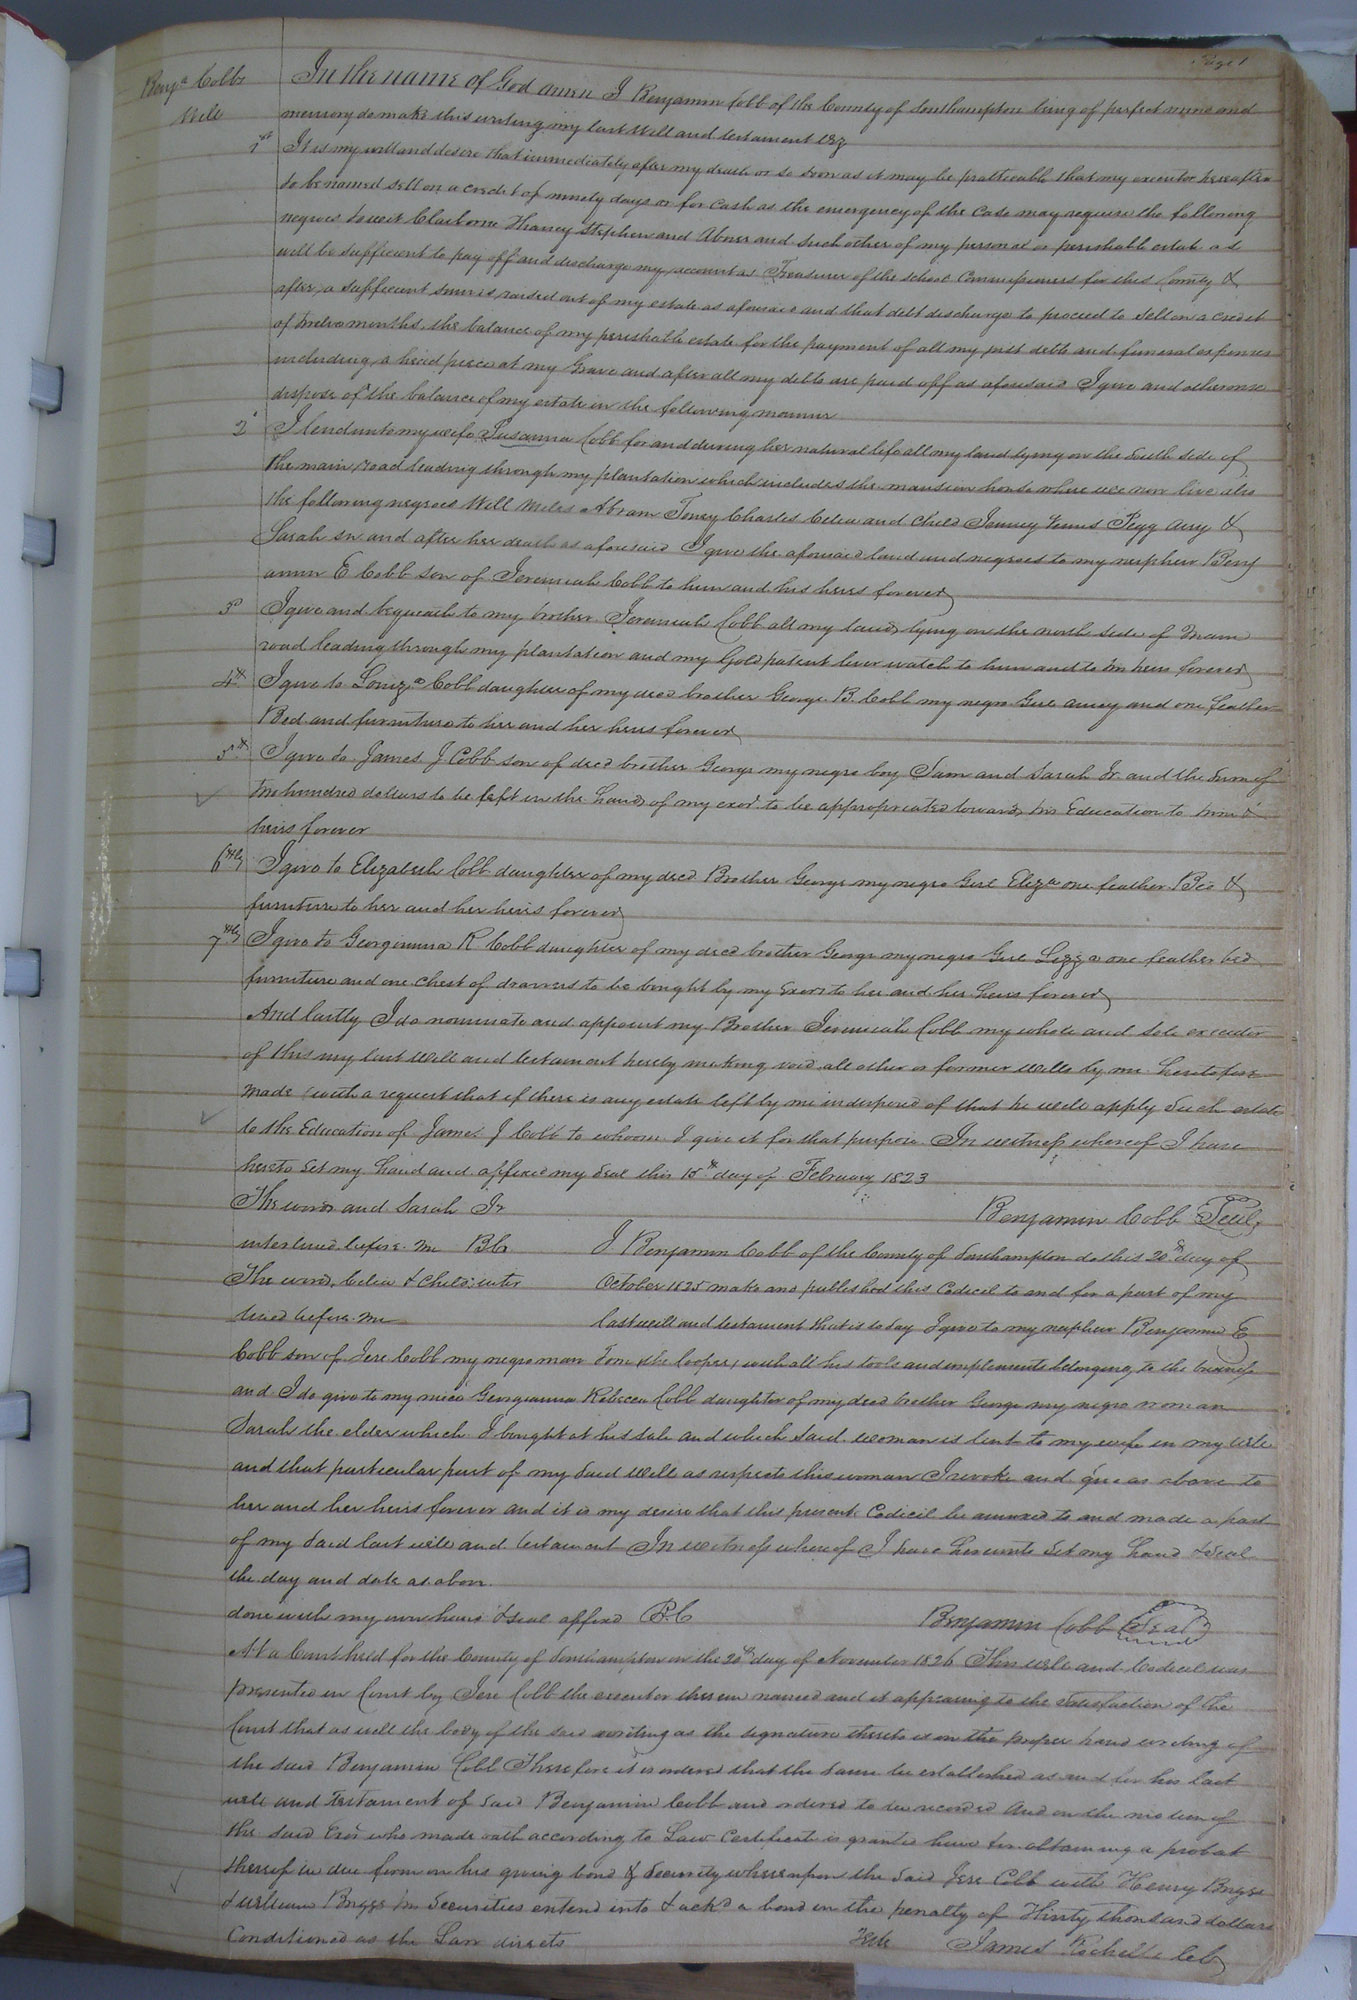 Page 1
Benja Cobbs
Will
In the name of God amen I Benjamin Cobb of the County of Southampton being of perfect mind and
memory do make this writing my last Will and testament viz
1st It is my will and desire that immediately after my death or so soon as it may be practicable that my executor hereafter
to be named sell on a credit of ninety days or for cash as the emergency of the case may require the following
negroes towit Claiborne Stephen and Abner and such other of my personal or perishable estate as
will be sufficient to pay off and discharge my account as Treasurer of the school Commissioners for this County &
after a sufficient sum is raised out of my estate as aforesaid and that debt discharge to proceed to sell on a credit
of twelve months the balance of my perishable estate for the payment of all my just debts and funeral expenses
including a head piece at my Grave and after all my debts are paid off as aforesaid I give and otherwise
dispose of the balance of my estate in the following manner
2d I lend unto my wife Susanna Cobb for and during her natural life all my land lying on the South side of
the main road leading through my plantation which includes the mansion house where we now live also
the following negroes Will Miles Abram Toney Charles Celia and child Jenney Pegg &
Sarah sr and after her death as aforesaid I give the aforesaid land and negroes to my nephew Benj
amin E Cobb son of Jeremiah Cobb to him and his heirs forever
3d I give and bequeath to my brother Jeremiah Cobb all my land lying on the north side of main
road leading through my plantation and my Gold patent lever watch to him and to his heirs forever
4th I give to Louiza Cobb daughter of my decd brother George B. Cobb my negro Girl and one feather
Bed and furniture to her and her heirs forever
5th I give to James J Cobb son of decd brother George my negro boy Sam and Sarah Jr. and the sum of
two hundred dollars to be left in the hands of my exor to be appropriated towards his Education to him &
heirs forever
6thly I give to Elizabeth Cobb daughter of my decd Brother George my negro Girl Eliza one feather Bed &
furniture to her and her heirs forever
7thly I give to Georgianna R Cobb daughter of my decd brother George my negro Girl Lizza one feather bed
furniture and one chest of drawers to be bought by my Exor to her and her heirs forever
And lastly I do nominate and appoint my Brother Jeremiah Cobb my whole and sole executor
of this my last Will and testament hereby making void all other or former wills by me heretofore
made with a request that if there is any estate left by me indisposed of that he will apply such estate
to the Education of James J Cobb to whom I give it for that purpose In witness whereof I have
hereto set my hand and affixed my seal this day of February 1823
The words and Sarah Jr Benjamin Cobb Seal
interlined before me BC I Benjamin Cobb of the County of Southampton do this 20th day of
The words Celia & child inter October 1825 make and published this Codicil to and for a part of my
lined before me last will and testament that is to say I give to my nephew Benjamin E
Cobb son of Jere Cobb my negro man Tom the Cooper, with all his tools and implements belonging to the business
and I do give to my niece Georgianna Rebecca Cobb daughter of my decd brother George my negro woman
Sarah the elder which I bought at his sale and which said woman is lent to my wife in my Will
and that particular part of my said Will as respects this woman I revoke and give as above to
her and her heirs forever and it is my desire that this present Codicil be annexed to and made a part
of my said last will and testament In witness whereof I have hereunto set my hand & seal
the day and date as above
done with my own hand & seal affixed B.C Benjamin Cobb Seal
At a Court held for the County of Southampton on the 20th day of November 1826 This Will and Codicil was
presented in Court by Jere Cobb the executor therein named and it appearing to the satisfaction of the
Court that as well the body of the said writing as the signature thereto is in the proper hand writing of
the said Benjamin Cobb Therefore it is ordered that the same be established as and for his last
will and testament of said Benjamin Cobb and ordered to be recorded And on the motion of
the said Exor who made oath according to Law certificate is granted him for obtaining a probat
thereof in due form on his giving bond & security whereupon the said Jere Cobb with Henry Briggs
& William Briggs his Securities entered into & ackd a bond in the penalty of Thirty thousand dollars
Conditioned as the Law directs Teste James Rochelle Clk